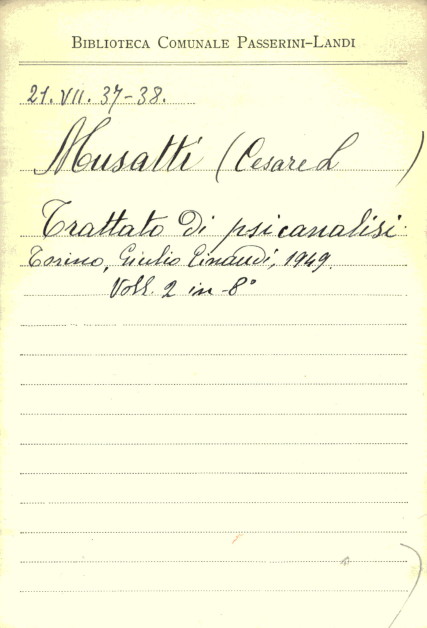 BIBLIOTECA COMUNALE PASSERINI-LANDI
21. VII. 37-38.
Musatti (Cesare L )
Trattato di psicanalisi.
Torino, Giulio Einaudi, 1949.
Voll. 2 in-8°